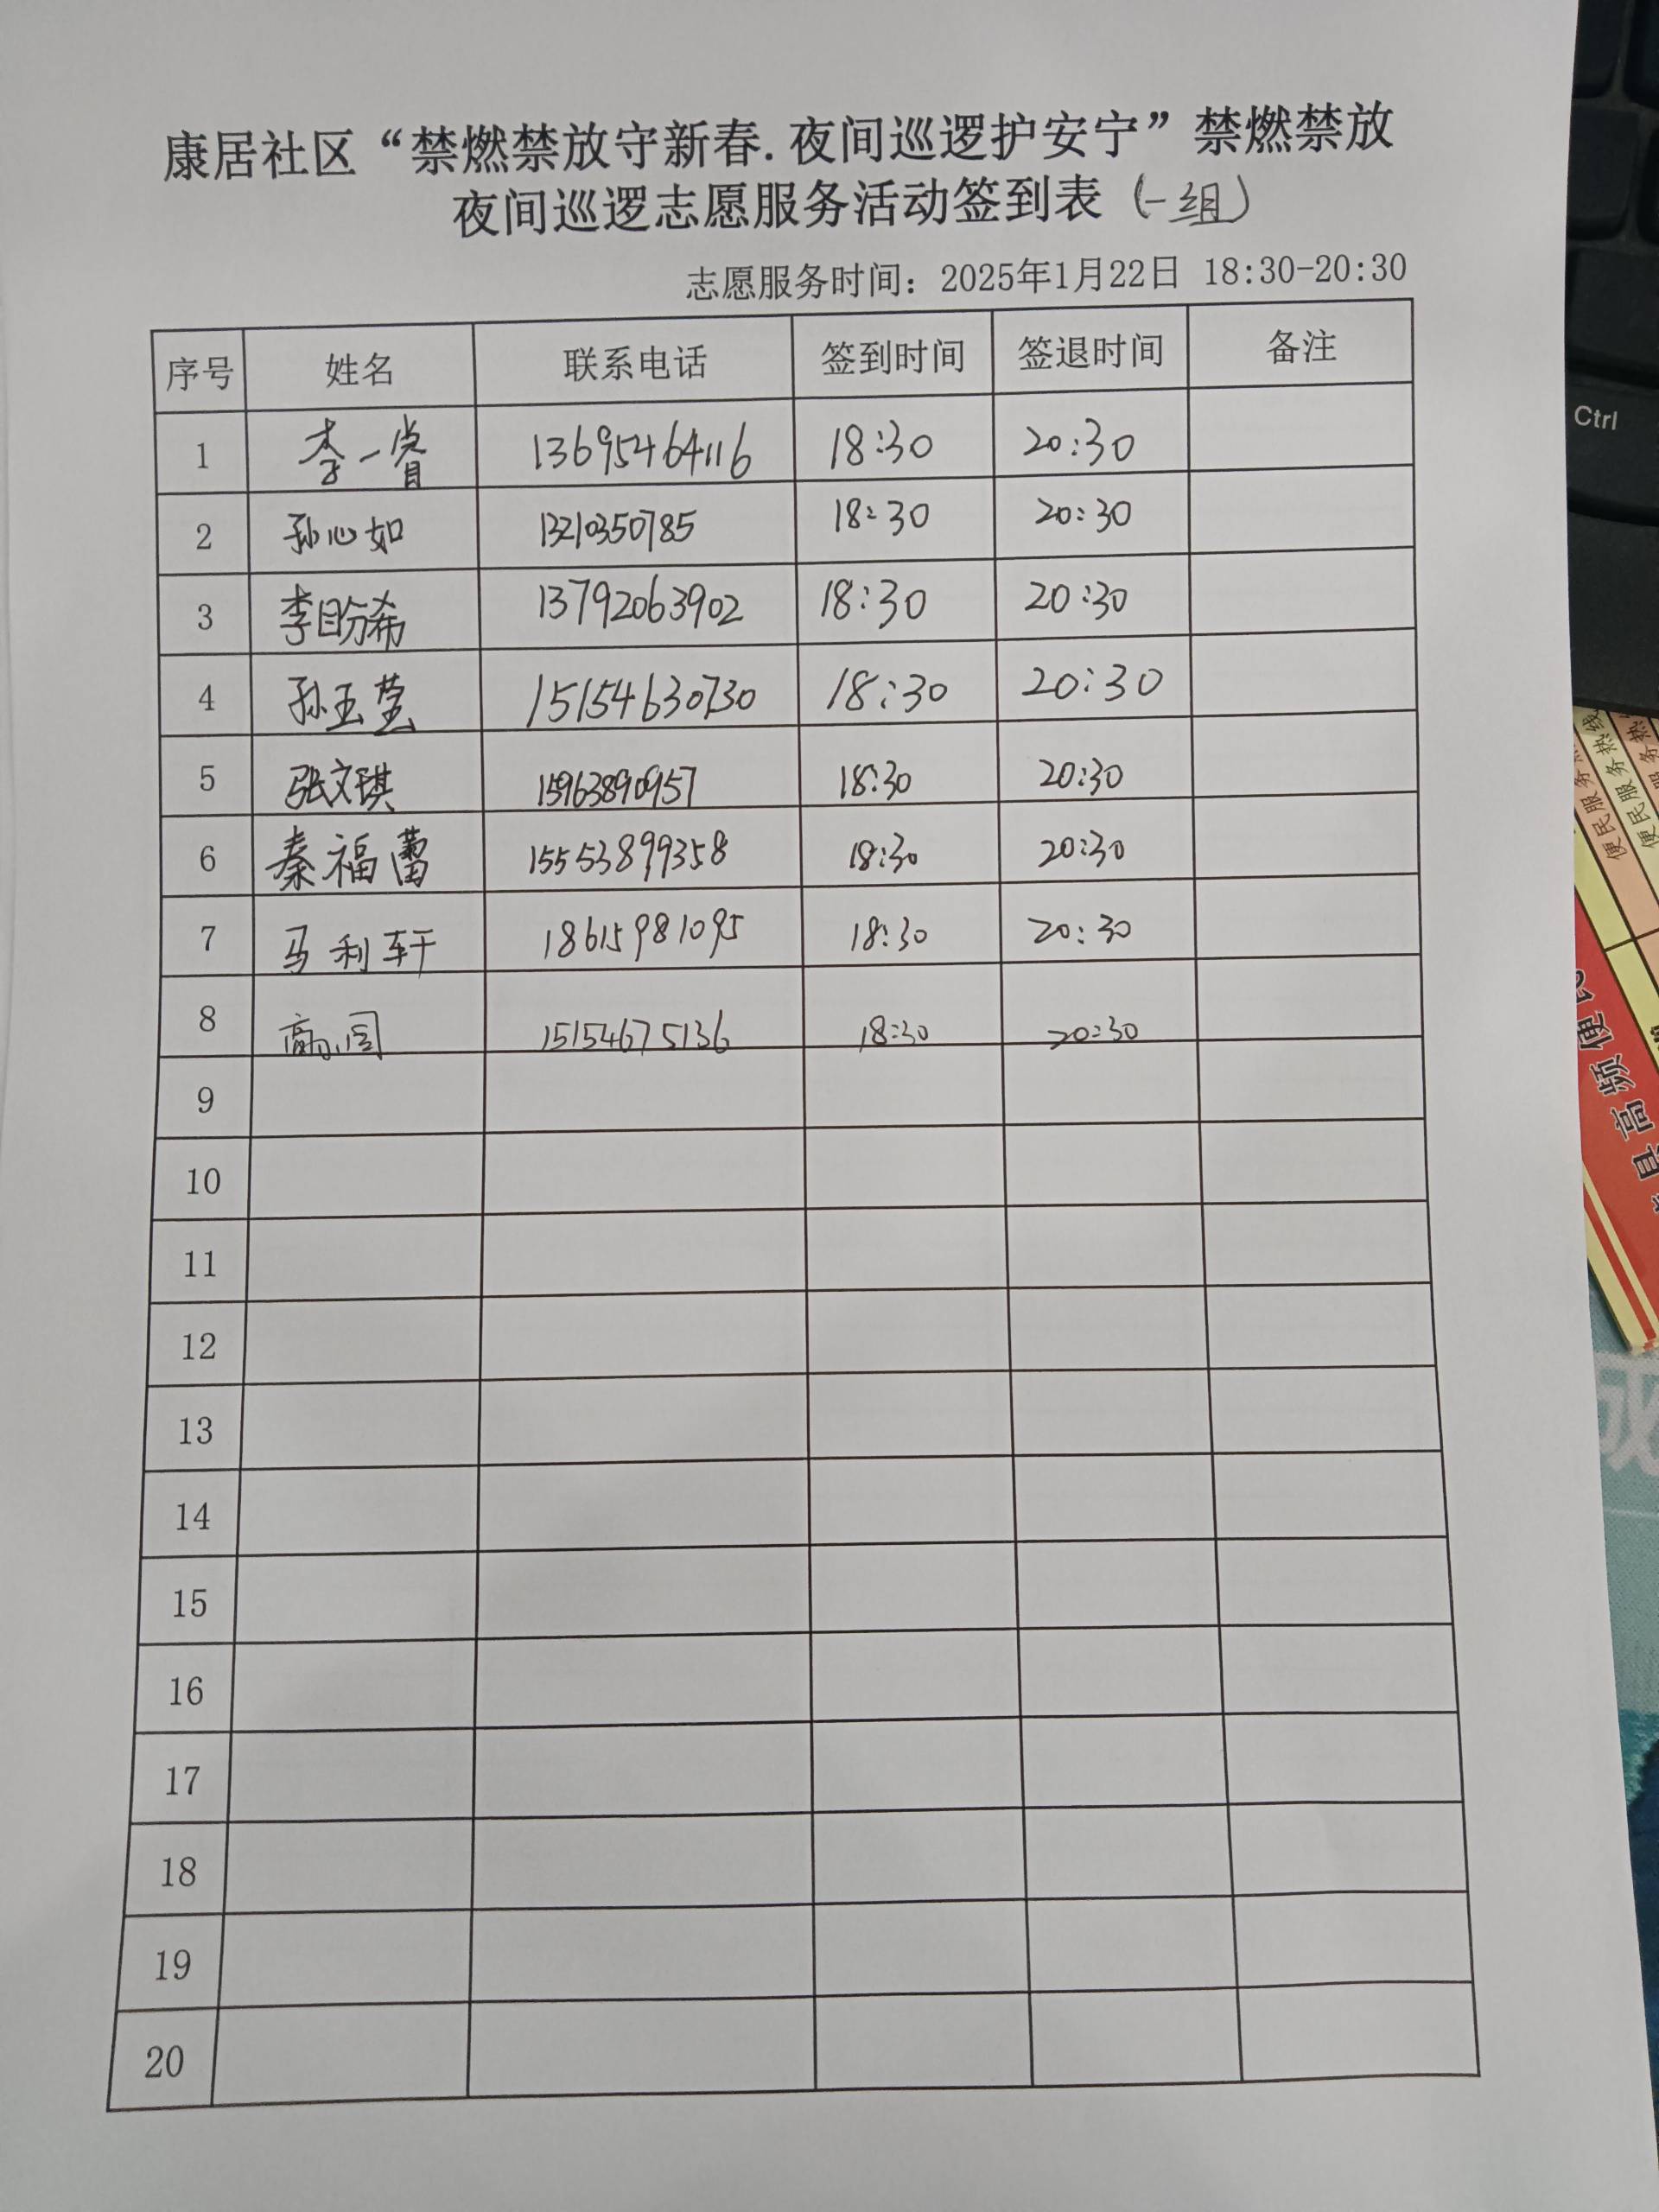 康居社区“禁燃禁放守新春.夜间巡逻护安宁”禁燃禁放
夜间巡逻志愿服务活动签到表（一组）
志愿服务时间：2025年1月22日 18:30-20:30
序号 姓名 联系电话 签到时间 签退时间 备注
1 李一 13695464116 18:30 20:30
2 孙心如 13210350785 18:30 20:30
3 李盼希 13792063902 18:30 20:30
4 孙玉莹 15154630730 18:30 20:30
5 张文琪 15963890957 18:30 20:30
6 秦福蕾 15553899358 18:30 20:30
7 马利轩 18615981095 18:30 20:30
8 15154675136 18:30 20:30
9
10
11
12
13
14
15
16
17
18
19
20
Ctrl
便民服务热线
便民服务热线
县高频便民